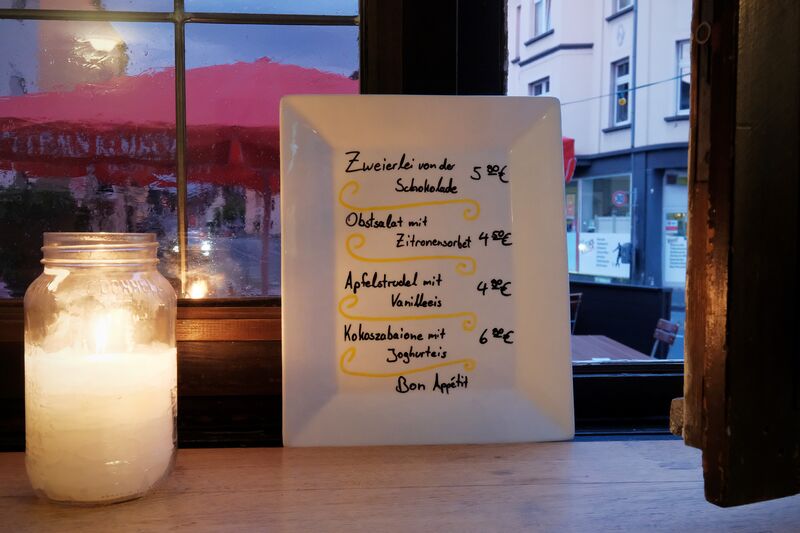 Zweierlei von der 5 90€
Schokolade
Obstsalat mit
Zitronensorbet 4 50€
Apfelstrudel mit 4 90€
Vanilleeis
Kokoszabaione mit 6 90€
Joghurteis
Bon Appétit